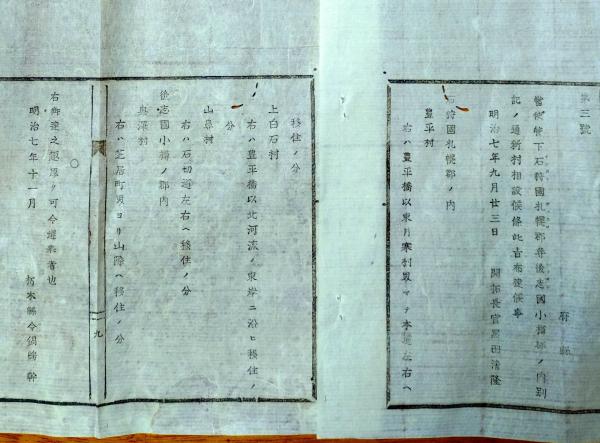 第三號
府縣
當使管下石狩國札幌郡并後志國小樽郡ノ内別
記ノ通新村相設候條此旨布達候事
明治七年九月廿三日 開拓長官黑田清隆
石狩國札幌郡ノ内
豊平村
右ハ豊平橋以東月寒村界マテ本道左右ヘ
移住ノ分
上白石村
右ハ豊平橋以北河流ノ東岸ニ沿ヒ移住ノ
分
山鼻村
右ハ石切道左右ヘ移住ノ分
後志國小樽ノ郡内
奥澤村
右ハ芝居町界ヨリ山際ヘ移住ノ分
九
〇
右御達之趣罫ク可令達業者也
明治七年十一月
栃木縣令鍋島幹